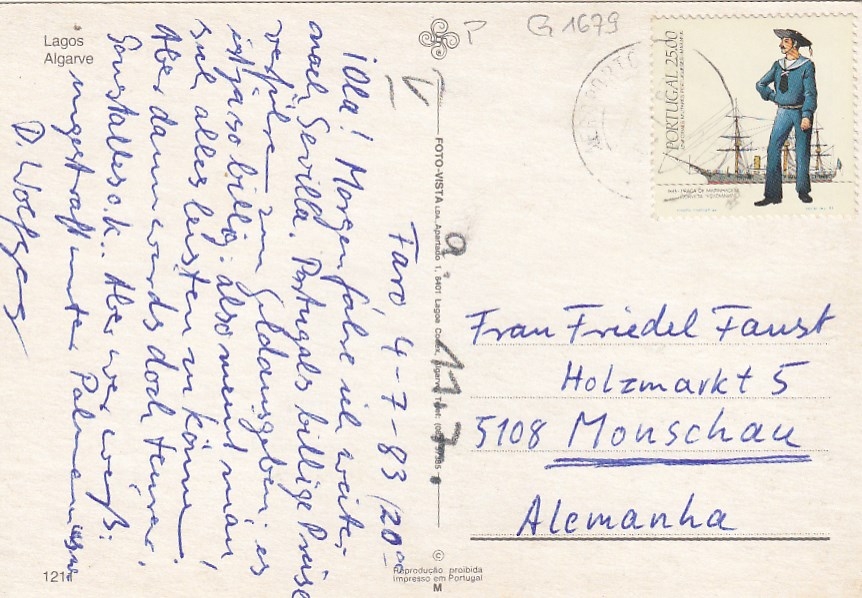 Lagos
Algarve
P
G 1679
PORTUGAL 25.00
Faro, 4-7-83 /20°°
¡Ola! Morgen fahre ich weiter
nach Sevilla. Portugals billige Preise
verführen zum Geldausgeben; es
ist ja so billig. also meint man,
sich alles leisten zu können.
Aber dann wird's doch teurer.
Sonst alles o.k.. Aber wer weiß:
ungestraft unter Palmen
D. Wolfgang
FOTO-VISTA LDA. Apartado 1, 8401 Lagoa Codex, Algarve
9.
117
Frau Friedel Faust
Holzmarkt 5
5108 Monschau
Alemanha
1211
©
Reprodução proibida
Impresso em Portugal
M